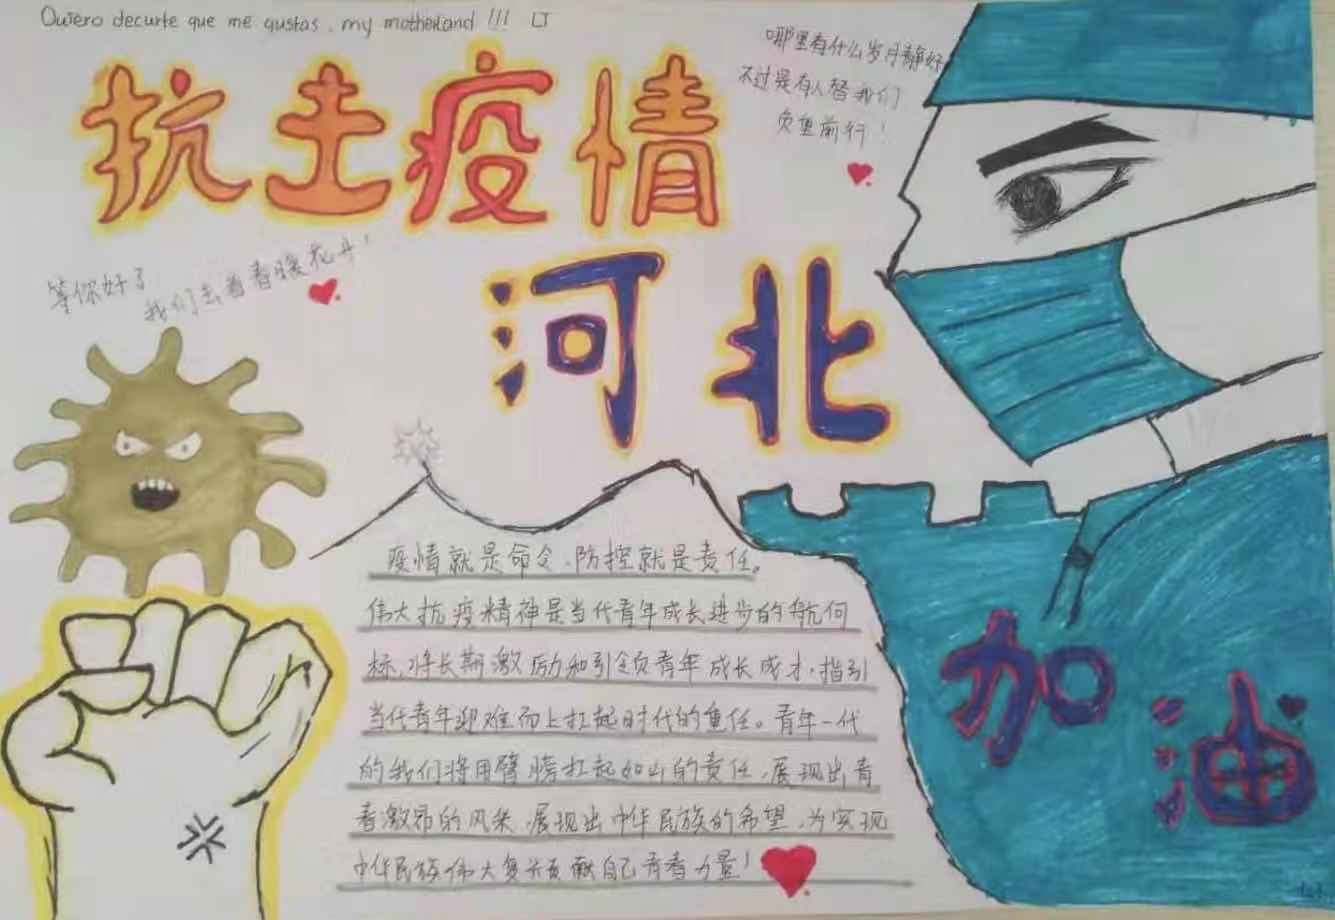 Quiero decurte que me gustas, my motherland !!! LJ
抗击疫情
哪里有什么岁月静好
不过是有人替我们
负重前行!
等你好了
我们去看春暖花开!
河北
疫情就是命令、防控就是责任。
伟大抗疫精神是当代青年成长进步的航向
标,将长期激励和引领青年成长成才,指引
当代青年迎难而上扛起时代的重任。青年一代
的我们将用臂膀扛起如山的责任,展现出青
春激昂的风采,展现出中华民族的希望,为实现
中华民族伟大复兴贡献自己青春力量!
加油